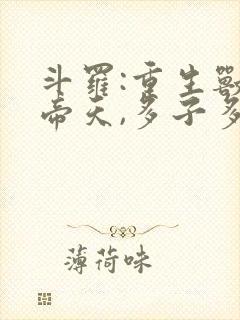 斗羅:重生獸
帝天,多子多
薄荷味